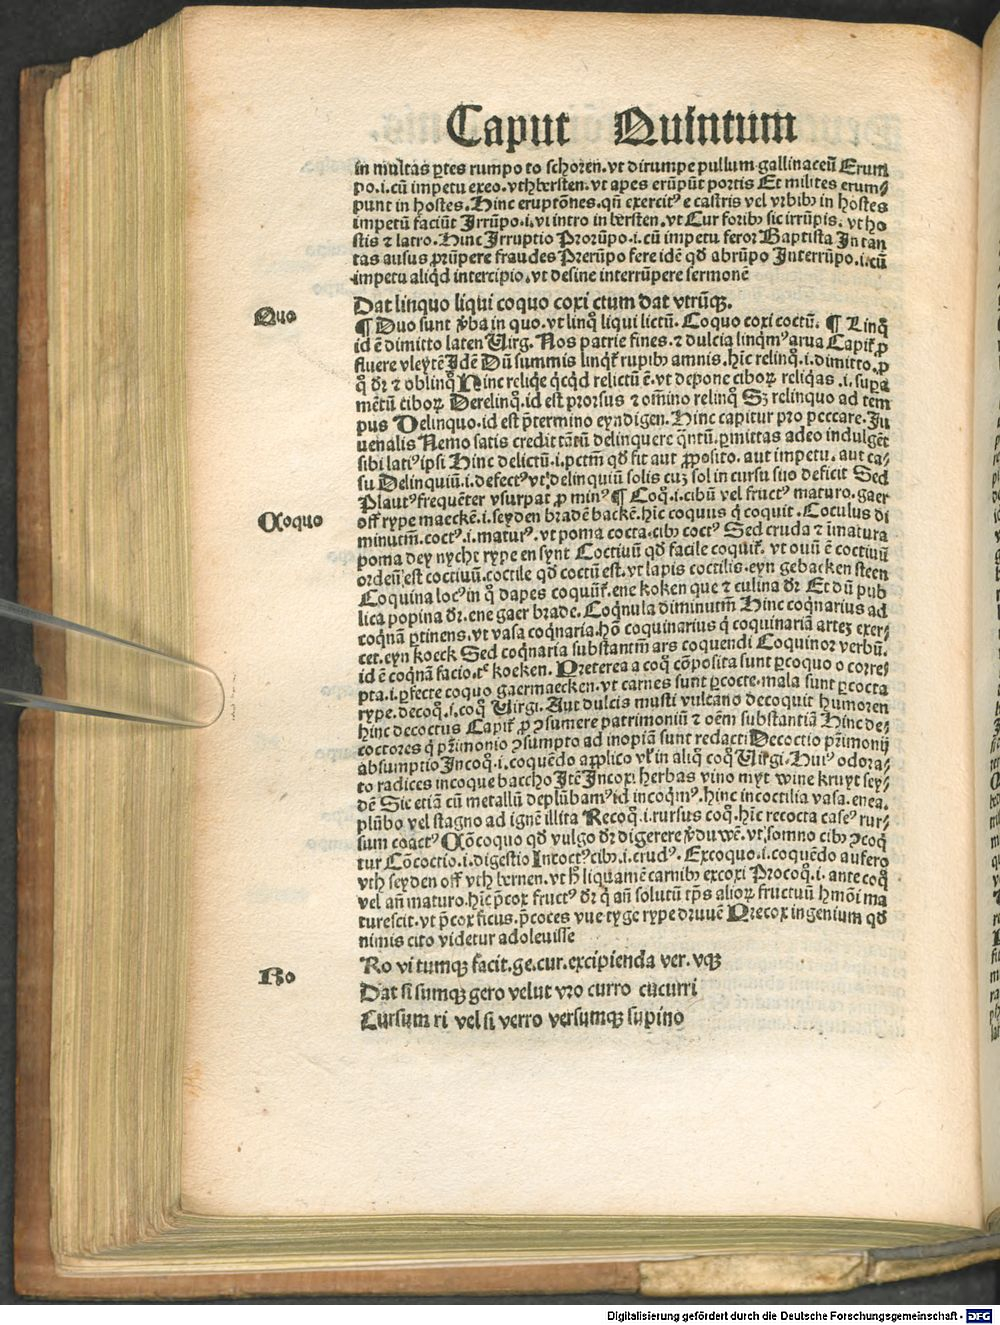 Caput Quintum
in multas ꝑtes rumpo to schoren. vt dirumpe pullum gallinaceū Erum
po. i. cū impetu exeo. vthbersten. vt apes erūpūt portis Et milites erum⸗
punt in hostes. Hinc eruptōnes. qn̄ exercitꝰ e castris vel vrbibꝫ in hostes
impetū faciūt Irrūpo. i. vi intro in bersten. vt Cur foribꝫ sic irrūpis. vt ho
stis ⁊ latro. Hinc Irruptio Prorūpo. i. cū impetu feror Baptista In tan
tas ausus ꝓrūpere fraudes Prerūpo fere idē qd̄ abrūpo Interrūpo. i. cū
impetu aliqd̄ intercipio. vt desine interrūpere sermonē
Dat linquo liqui coquo coxi ctum dat vtrūqꝫ.
Quo
¶ Duo sunt v̄ba in quo. vt linqͦ liqui lictū. Coquo coxi coctū. ¶ Linqͦ
id ē dimitto laten Virg. Nos patrie fines. ⁊ dulcia linqmꝰ arua Capit̄ ꝓ
fluere vleytē Idē Dū summis linqt̄ rupibꝫ amnis. hīc relinqͦ. i. dimitto. ꝓ
qͦ dr̄ ⁊ oblinqͦ Hinc reliqe qcqd relictū ē. vt depone ciboꝝ reliqas. i. supra
mētū ciboꝝ Derelinqͦ. id est prorsus ⁊ om̄ino relinqͦ Sꝫ relinquo ad tem
pus Delinquo. id est p̄termino eyndigen. Hinc capitur pro peccare. Iu
uenalis Nemo satis credit tm̄tū delinquere qntū. ꝑmittas adeo indulgēt
sibi latiꝰ ipsi Hinc delictū. i. pctm̄ qd̄ fit aut ꝓposito. aut impetu. aut ca⸗
su Delinquiū. i. defectꝰ vt delinquiū solis cuꝫ sol in cursu suo deficit Sed
Plautꝰ frequēter vsurpat ꝓ minꝰ ¶ Coqͦ. i. cibū vel fructꝰ maturo. gaer
Coquo
off rype maeckē. i. seyden bradē backē. hīc coquus q coquit. Coculus di
minutm̄. coctꝰ. i. maturꝰ. vt poma cocta. cibꝫ coctꝰ Sed cruda ⁊ īmatura
poma dey nycht rype en synt Coctiuū qd̄ facile coquit̄. vt ouū ē coctiuū
ordeū est coctiuū. coctile qd̄ coctū est. vt lapis coctilis. eyn gebacken steen
Coquina locꝰ in qͦ dapes coquūt̄. ene koken que ⁊ culina dr̄ Et dū pub
lica popina dr̄. ene gaer brade. Coqnula diminutm̄ Hinc coqnarius ad
coqnā ꝑtinens. vt vasa coqnaria. hō coquinarius q coquinariā arteꝫ exer⸗
cet. eyn koeck Sed coqnaria substantm̄ ars coquendi Coquinor verbū.
id ē coqnā facio. tͤ koeken. Preterea a coqͦ cōposita sunt ꝑcoquo o corre
pta. i. ꝑfecte coquo gaermaecken. vt carnes sunt ꝑcocte. mala sunt ꝑcocta
rype. decoqͦ. i. coqͦ Virgi. Aut dulcis musti vulcano decoquit humorem
hinc decoctus Capit̄ ꝓ ꝯsumere patrimoniū ⁊ oēm substantiā Hinc de⸗
coctores q pr̄imonio ꝯsumpto ad inopiā sunt redacti Decoctio pr̄imonij
absumptio Incoqͦ. i. coquēdo applico vl̄ in aliqͦ coqͦ Virgi. Huiꝰ odora⸗
to radices incoque baccho Itē Incoxi herbas vino myt wine kruyt sey⸗
dē Sic etiā cū metallū deplūbamꝰ id incoqmꝰ. hinc incoctilia vasa. enea.
plūbo vel stagno ad ignē illita Recoqͦ. i. rursus coqͦ. hīc recocta caseꝰ rur⸗
sum coactꝰ Cōcoquo qd̄ vulgo dr̄ digerere v̄duwē. vt somno cibꝫ ꝯcoq
tur Cōcoctio. i. digestio Incoctꝰ cibꝫ. i. crudꝰ. Excoquo. i. coquēdo aufero
vth seyden off vth bernen. vt h̄ liquamē carnibꝫ excoxi Procoqͦ. i. ante coqͦ
vel an̄ maturo. hīc p̄cox fructꝰ dr̄ q an̄ solutū tp̄s alioꝝ fructuū hm̄ōi ma
turescit. vt p̄cox ficus. p̄coces vue tyge rype druuē Precox ingenium qd̄
nimis cito videtur adoleuisse
Ro vi tumqꝫ facit. ge. cur. excipienda ver. vqꝫ
Ro
Dat si sumqꝫ gero velut vro curro cucurri
Cursum ri vel si verro versumqꝫ supino
Digitalisierung gefördert durch die Deutsche Forschungsgemeinschaft - DFG